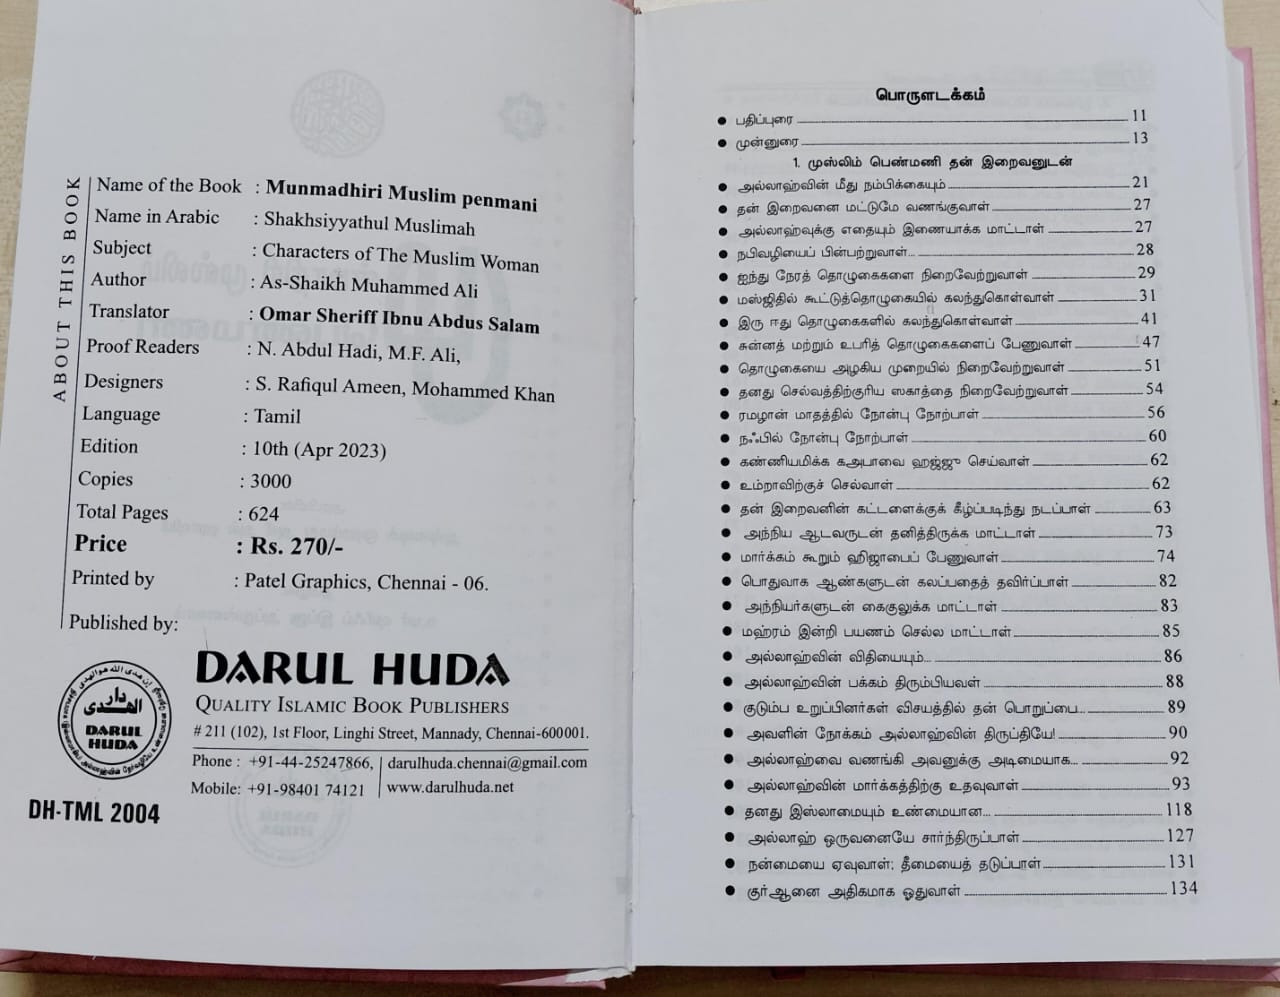 ABOUT THIS BOOK
Name of the Book : Munmadhiri Muslim penmani
Name in Arabic : Shakhsiyyathul Muslimah
Subject : Characters of The Muslim Woman
Author : As-Shaikh Muhammed Ali
Translator : Omar Sheriff Ibnu Abdus Salam
Proof Readers : N. Abdul Hadi, M.F. Ali,
Designers : S. Rafiqul Ameen, Mohammed Khan
Language : Tamil
Edition : 10th (Apr 2023)
Copies : 3000
Total Pages : 624
Price : Rs. 270/-
Printed by : Patel Graphics, Chennai - 06.
Published by:
DARUL HUDA
QUALITY ISLAMIC BOOK PUBLISHERS
# 211 (102), 1st Floor, Linghi Street, Mannady, Chennai-600001.
Phone : +91-44-25247866, darulhuda.chennai@gmail.com
Mobile: +91-98401 74121 www.darulhuda.net
دار
الهدى
DARUL
HUDA
DH-TML 2004
பொருளடக்கம்
பதிப்புரை 11
முன்னுரை 13
1. முஸ்லிம் பெண்மணி தன் இறைவனுடன்
அல்லாஹ்வின் மீது நம்பிக்கையும் 21
தன் இறைவனை மட்டுமே வணங்குவாள் 27
அல்லாஹ்வுக்கு எதையும் இணையாக்க மாட்டாள் 27
நபிவழியைப் பின்பற்றுவாள்... 28
ஐந்து நேரத் தொழுகைகளை நிறைவேற்றுவாள் 29
மஸ்ஜிதில் கூட்டுத்தொழுகையில் கலந்துகொள்வாள் 31
இரு ஈது தொழுகைகளில் கலந்துகொள்வாள் 41
சுன்னத் மற்றும் உபரித் தொழுகைகளைப் பேணுவாள் 47
தொழுகையை அழகிய முறையில் நிறைவேற்றுவாள் 51
தனது செல்வத்திற்குரிய ஸகாத்தை நிறைவேற்றுவாள் 54
ரமழான் மாதத்தில் நோன்பு நோற்பாள் 56
நஃபில் நோன்பு நோற்பாள் 60
கண்ணியமிக்க கஅபாவை ஹஜ்ஜு செய்வாள் 62
உம்றாவிற்குச் செல்வாள் 62
தன் இறைவனின் கட்டளைக்குக் கீழ்ப்படிந்து நடப்பாள் 63
அந்நிய ஆடவருடன் தனித்திருக்க மாட்டாள் 73
மார்க்கம் கூறும் ஹிஜாபைப் பேணுவாள் 74
பொதுவாக ஆண்களுடன் கலப்பதைத் தவிர்ப்பாள் 82
அந்நியர்களுடன் கைகுலுக்க மாட்டாள் 83
மஹ்ரம் இன்றி பயணம் செல்ல மாட்டாள் 85
அல்லாஹ்வின் விதியையும்... 86
அல்லாஹ்வின் பக்கம் திரும்பியவள் 88
குடும்ப உறுப்பினர்கள் விசயத்தில் தன் பொறுப்பை... 89
அவளின் நோக்கம் அல்லாஹ்வின் திருப்தியே! 90
அல்லாஹ்வை வணங்கி அவனுக்கு அடிமையாக... 92
அல்லாஹ்வின் மார்க்கத்திற்கு உதவுவாள் 93
தனது இஸ்லாமையும் உண்மையான... 118
அல்லாஹ் ஒருவனையே சார்ந்திருப்பாள் 127
நன்மையை ஏவுவாள்; தீமையைத் தடுப்பாள் 131
குர்ஆனை அதிகமாக ஓதுவாள் 134